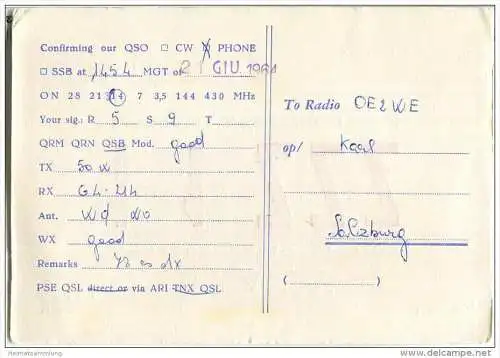 Confirming our QSO □ CW X PHONE
□ SSB at 1454 MGT of 21 GIU. 1964
ON 28 21 14 7 3,5 144 430 MHz
Your sig.: R 5 S 9 T
QRM QRN QSB Mod. good
TX 50 W
RX G4-214
Ant.
WX good
Remarks 73 es dx
PSE QSL direct or via ARI TNX QSL
To Radio OE2WE
op/ Karl
Salzburg
( )
Heimatsammlung